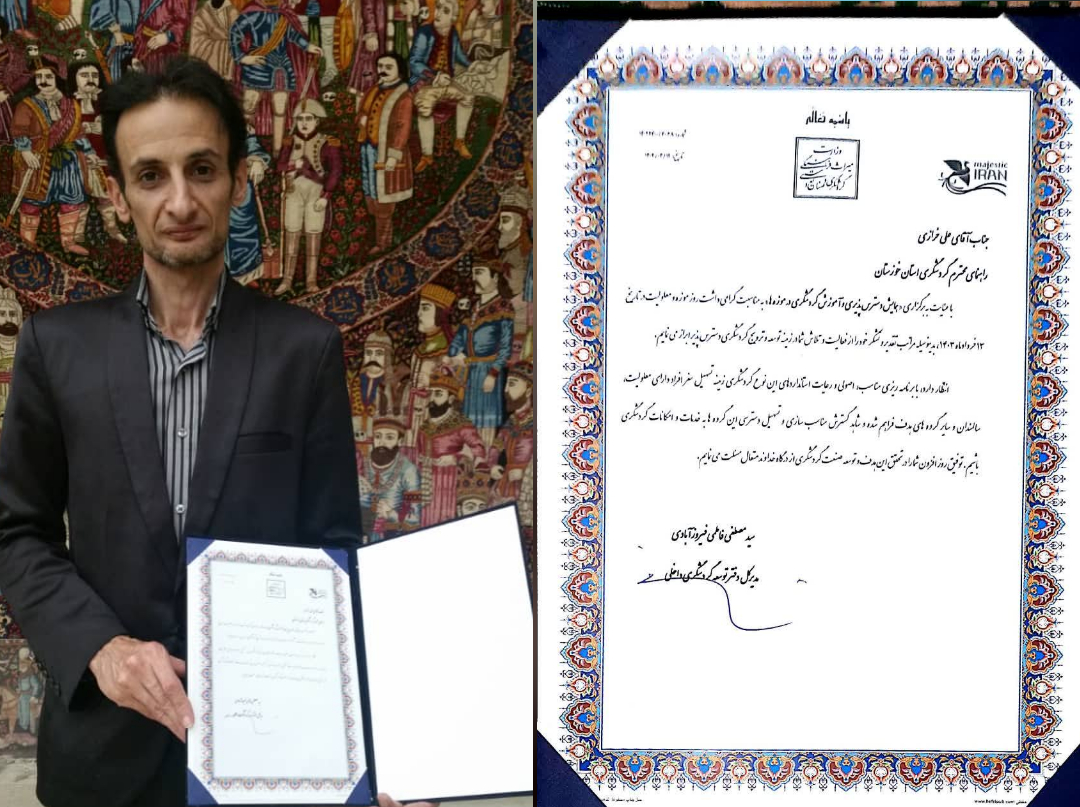 باسمه تعالی
وزارت
میراث فرهنگی
majestic
IRAN
جناب آقای علی خرازی
راهنمای محترم گردشگری استان خوزستان
با عنایت به برگزاری «همایش دسترس پذیری و آموزش گردشگری در موزه ها» به مناسبت گرامی داشت روز موزه و معلولیت در تاریخ
۱۳ خرداد ماه ۱۴۰۳، بدینوسیله مراتب تقدیر و تشکر خود را از فعالیت و تلاش شما در زمینه توسعه و ترویج گردشگری دسترس پذیر ابراز می نمایم.
انتظار دارد، با برنامه ریزی مناسب، اصولی و رعایت استانداردهای این نوع گردشگری زمینه تسهیل سفر افراد دارای معلولیت،
سالمندان و سایر گروه های هدف فراهم شده و شاهد گسترش مناسب سازی و تسهیل دسترسی این گروه ها به خدمات و امکانات گردشگری
باشیم. توفیق روز افزون شما را در تحقق این هدف و توسعه صنعت گردشگری از درگاه خداوند متعال مسئلت می نمایم.
سید مصطفی فاطمی فیروزآبادی
مدیرکل دفتر توسعه گردشگری داخلی